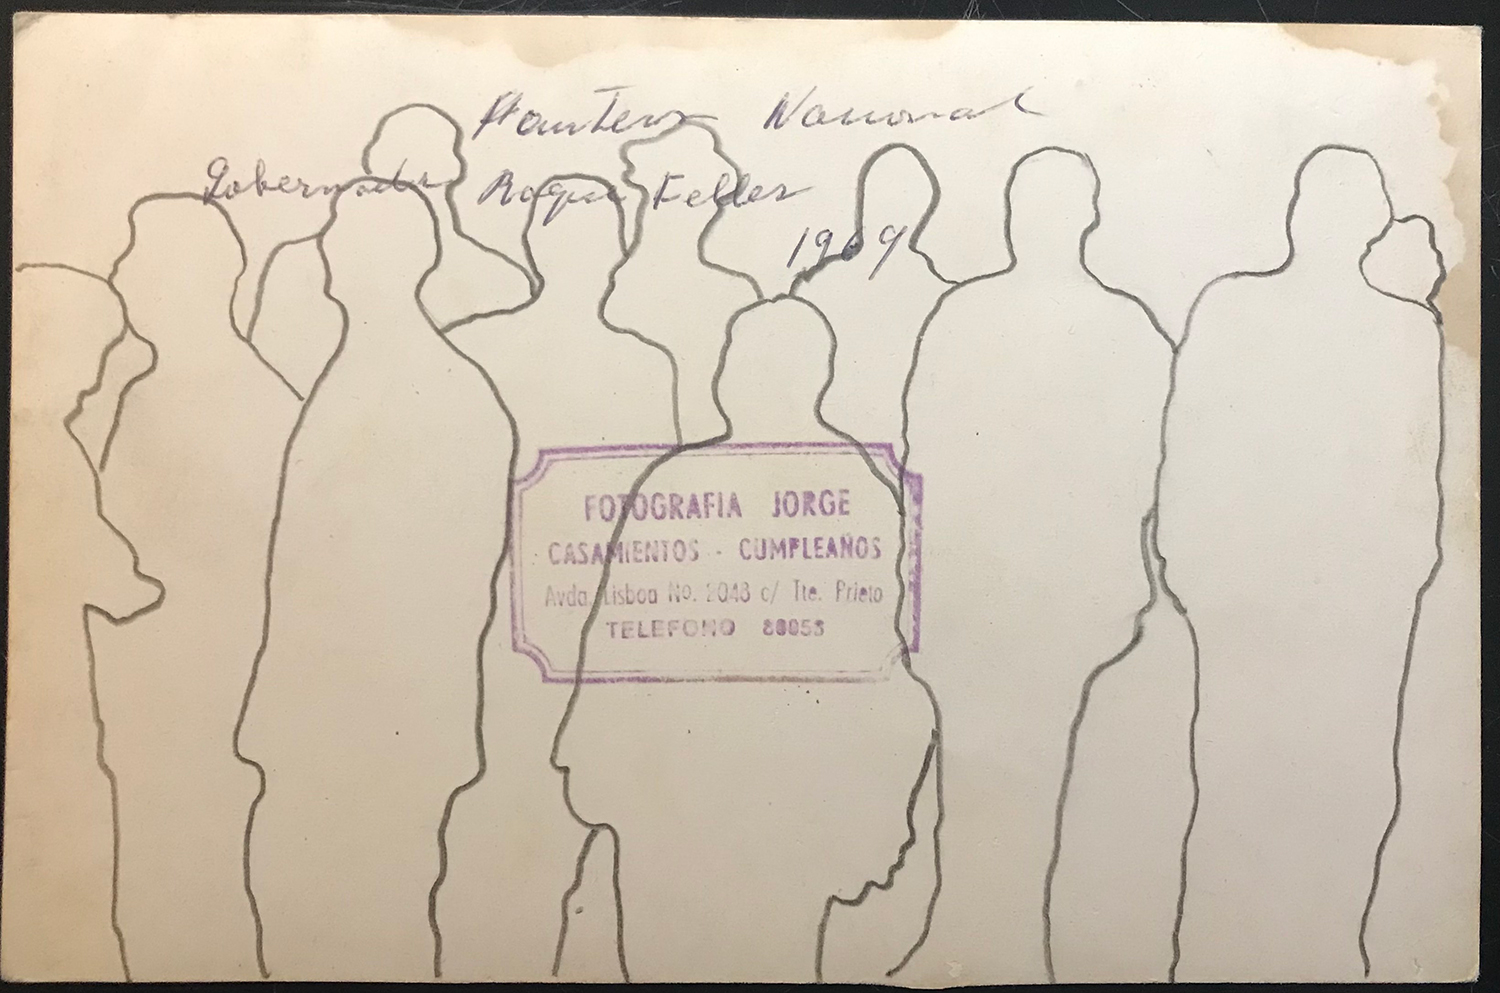 Panteon Nacional
Gobernador Roque Feller
1969
FOTOGRAFIA JORGE
CASAMIENTOS - CUMPLEAÑOS
Avda. Lisboa No. 2048 c/ Tte. Prieto
TELEFONO